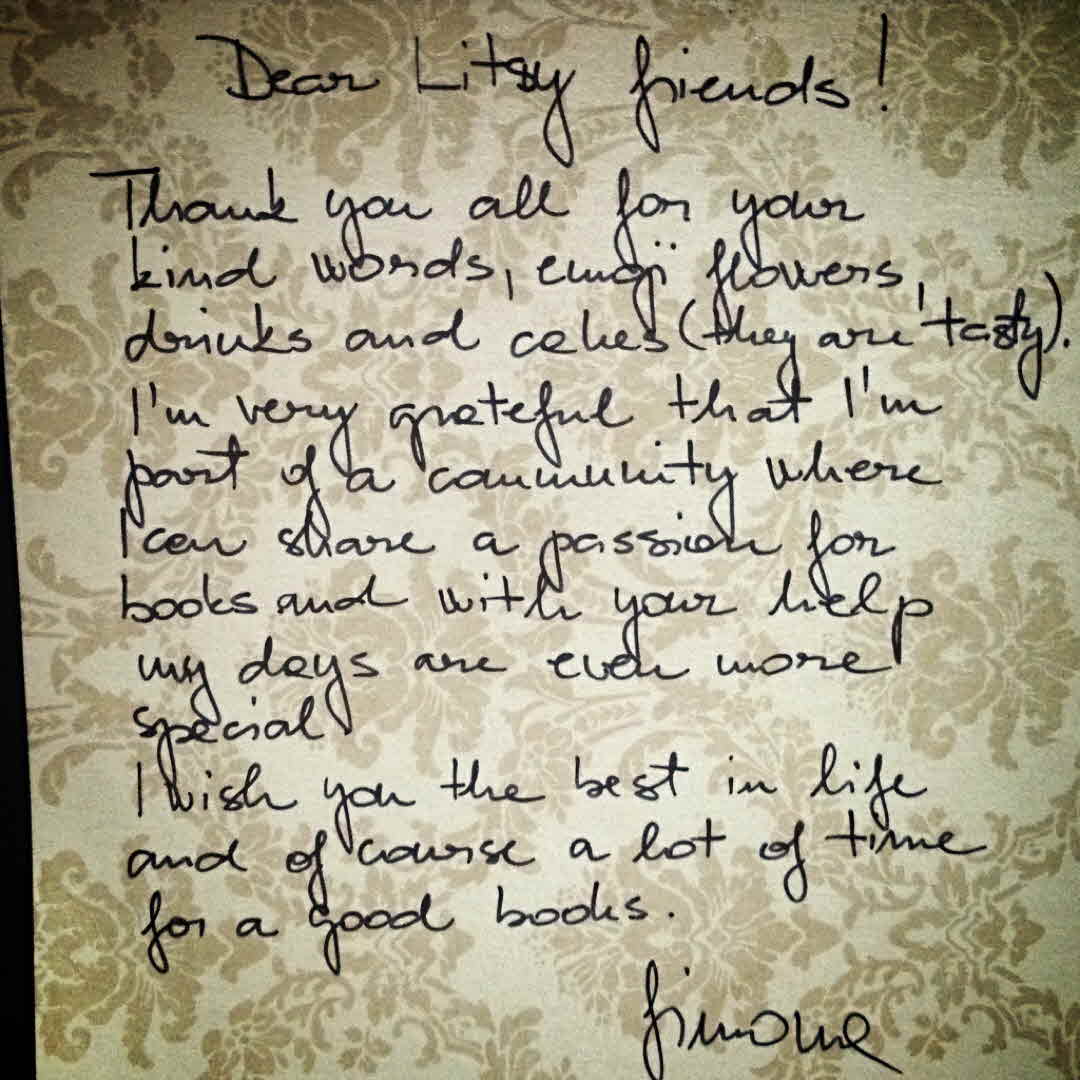 Dear Litsy friends!
Thank you all for your
kind words, emoji flowers,
drinks and cakes (they are tasty).
I'm very grateful that I'm
part of a community where
I can share a passion for
books and with your help
my days are even more
special
I wish you the best in life
and of course a lot of time
for a good books.
Simone